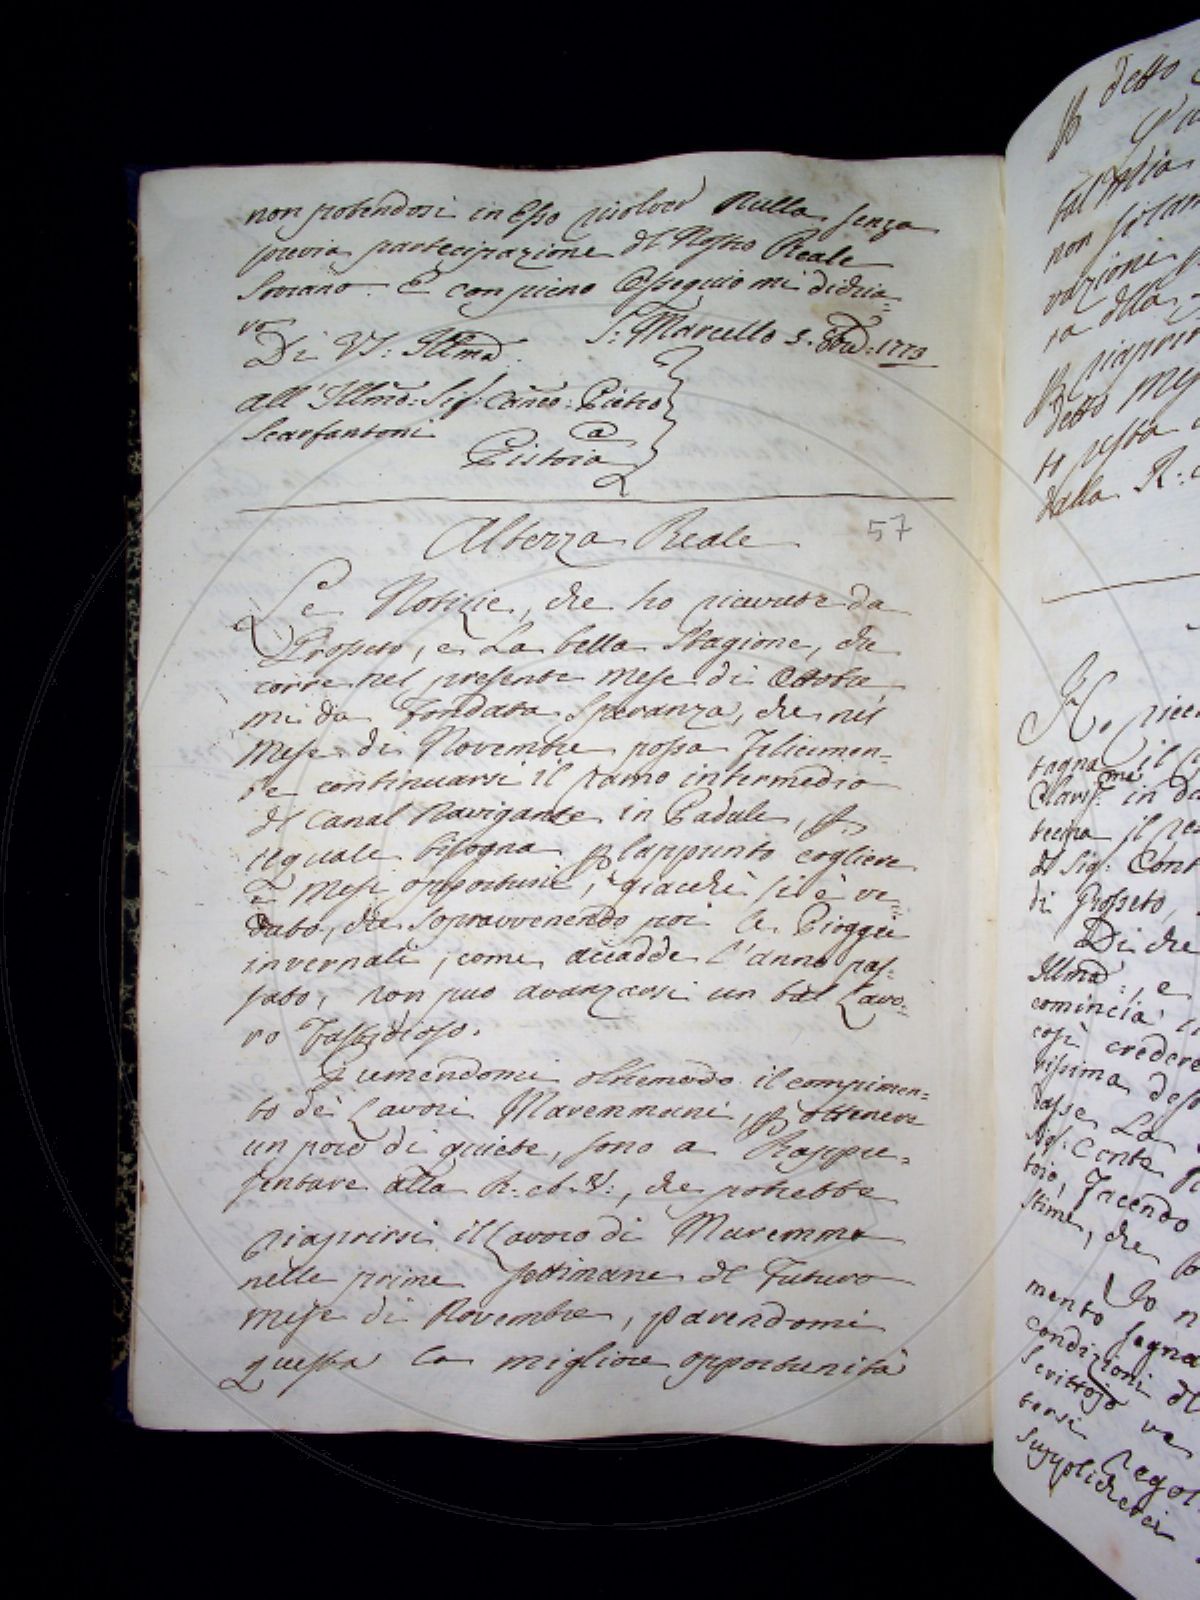 non potendosi in Esso risolver Nulla senza
previa partecipazione del Nostro Reale
Sovrano. E con pieno Ossequio mi dichia=
ro
Di VS: Illma. S: Marcello 5. Obre: 1773
all'Illmo: Sig: Canco: Pietro
Scarfantoni
a
Pistoia
Altezza Reale 57
Le Notizie, che ho ricavate da
Grosseto, e La bella Stagione, che
corre nel presente Mese di Ottobre,
mi da fondata Speranza, che nel
Mese di Novembre possa felicemen=
te continuarsi il ramo intermedio
del Canal Navigante in Padule, p
il quale bisogna p l'appunto cogliere
i Mesi opportuni, giacchè si è ve=
duto, che sopravvenendo poi le Pioggie
invernali, come accadde l'anno pas=
sato, non può avanzarsi un tal Lavo=
ro fastidioso.
Premendomi oltremodo il compimen=
to dei Lavori Maremmani, p ottenere
un poco di quiete, sono a Rappre=
sentare alla R: A: V:, che potrebbe
riaprirsi il Lavoro di Maremma
nelle prime settimane del futuro
Mese di Novembre, parendomi
questa la migliore opportunità
detto
tal
non
vazioni
ra della
p riaprir
detto
to resta
dalla R:
Ho rice
tagna il
Claris.me in da
tecina il
del Sig: Cont
di Grosseto,
Di che
Illma:, e
comincia
così credere
rissima
tasse La
Sig: Conte
toio, facendo
stime, che
Io n
mento segna
condizioni del
Scrittojo ve
tersi regol
supplicherei